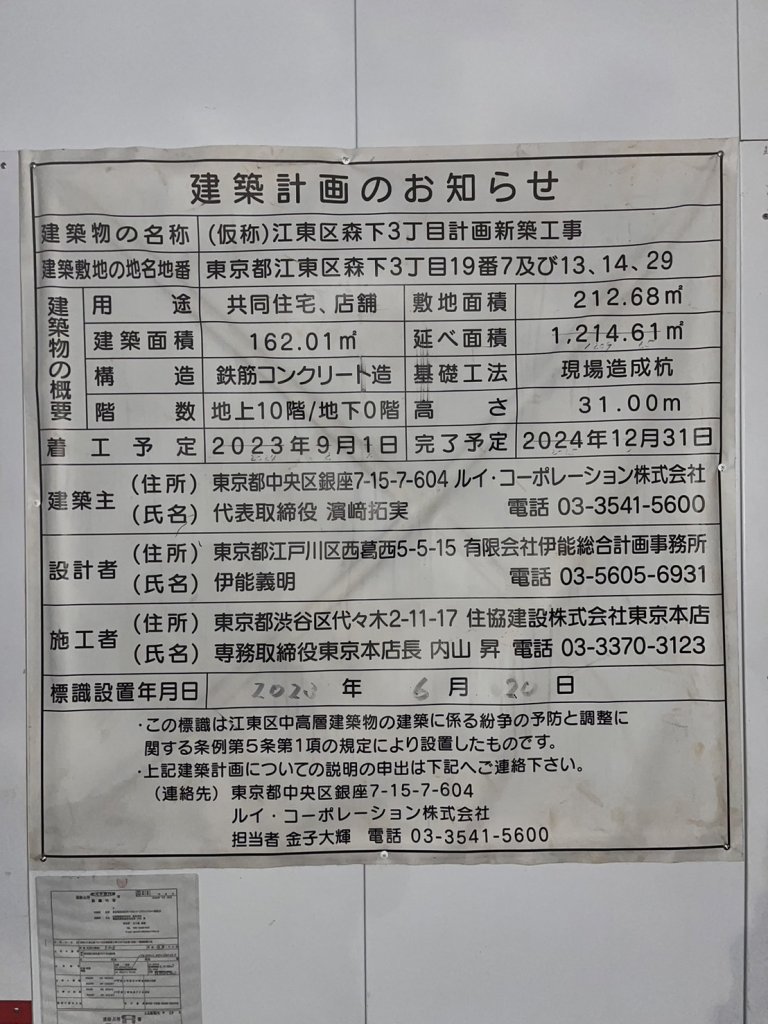 建築計画のお知らせ
建築物の名称 (仮称)江東区森下3丁目計画新築工事
建築敷地の地名地番 東京都江東区森下3丁目19番7及び13、14、29
建築物の概要
用途 共同住宅、店舗 敷地面積 212.68㎡
建築面積 162.01㎡ 延べ面積 1,214.61㎡
構造 鉄筋コンクリート造 基礎工法 現場造成杭
階数 地上10階/地下0階 高さ 31.00m
着工予定 2023年9月1日 完了予定 2024年12月31日
建築主 (住所) 東京都中央区銀座7-15-7-604 ルイ・コーポレーション株式会社
(氏名) 代表取締役 濱﨑拓実 電話 03-3541-5600
設計者 (住所) 東京都江戸川区西葛西5-5-15 有限会社伊能総合計画事務所
(氏名) 伊能義明 電話 03-5605-6931
施工者 (住所) 東京都渋谷区代々木2-11-17 住協建設株式会社東京本店
(氏名) 専務取締役東京本店長 内山 昇 電話 03-3370-3123
標識設置年月日 2023年 6月 20日
・この標識は江東区中高層建築物の建築に係る紛争の予防と調整に
関する条例第5条第1項の規定により設置したものです。
・上記建築計画についての説明の申出は下記へご連絡下さい。
(連絡先) 東京都中央区銀座7-15-7-604
ルイ・コーポレーション株式会社
担当者 金子大輝 電話 03-3541-5600